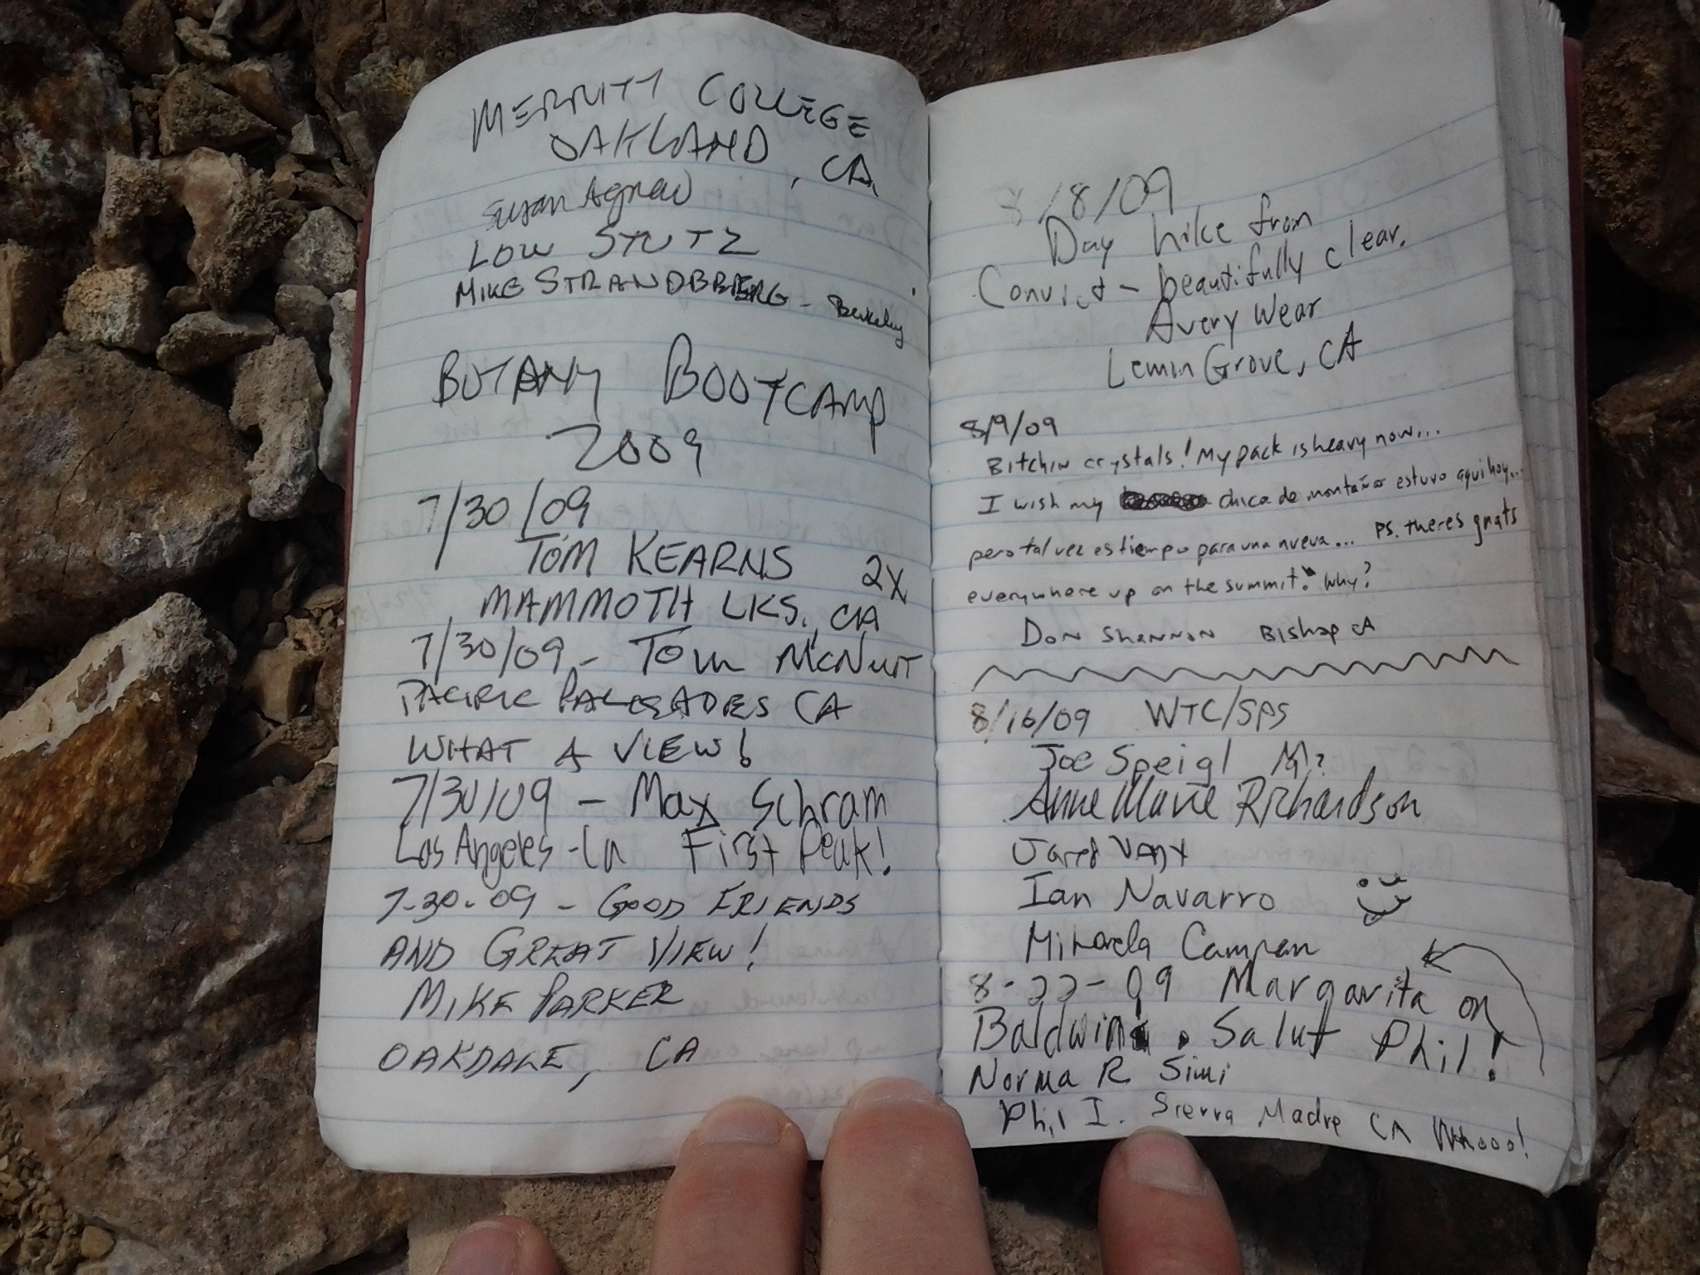 MERRITT COLLEGE
OAKLAND, CA
Susan Agnew
LOW STUTZ
MIKE STRANDBERG - Berkeley
BOTANY BOOTCAMP
2009
7/30/09
TOM KEARNS 2X
MAMMOTH LKS., CA
7/30/09 - TOM McNUTT
PACIFIC PALISADES CA
WHAT A VIEW!
7/30/09 - Max Schram
Los Angeles - Ca First Peak!
7-30-09 - GOOD FRIENDS
AND GREAT VIEW!
MIKE PARKER
OAKDALE, CA
8/8/09
Day hike from
Convict - beautifully clear.
Avery Wear
Lemon Grove, CA
8/9/09
Bitchin crystals! My pack is heavy now...
I wish my chica de montañas estuvo aqui hoy...
pero tal vez es tiempo para una nueva... PS. theres gnats
everywhere up on the summit. Why?
DON SHANNON BIShop CA
8/16/09 WTC/SPS
Joe Speigl
Anne Marie Richardson
Jared
Ian Navarro
Mihaela
8-22-09 Margarita on
Baldwin. Salut Phil!
Norma R Simi
Phil I. Sierra Madre CA Whooo!